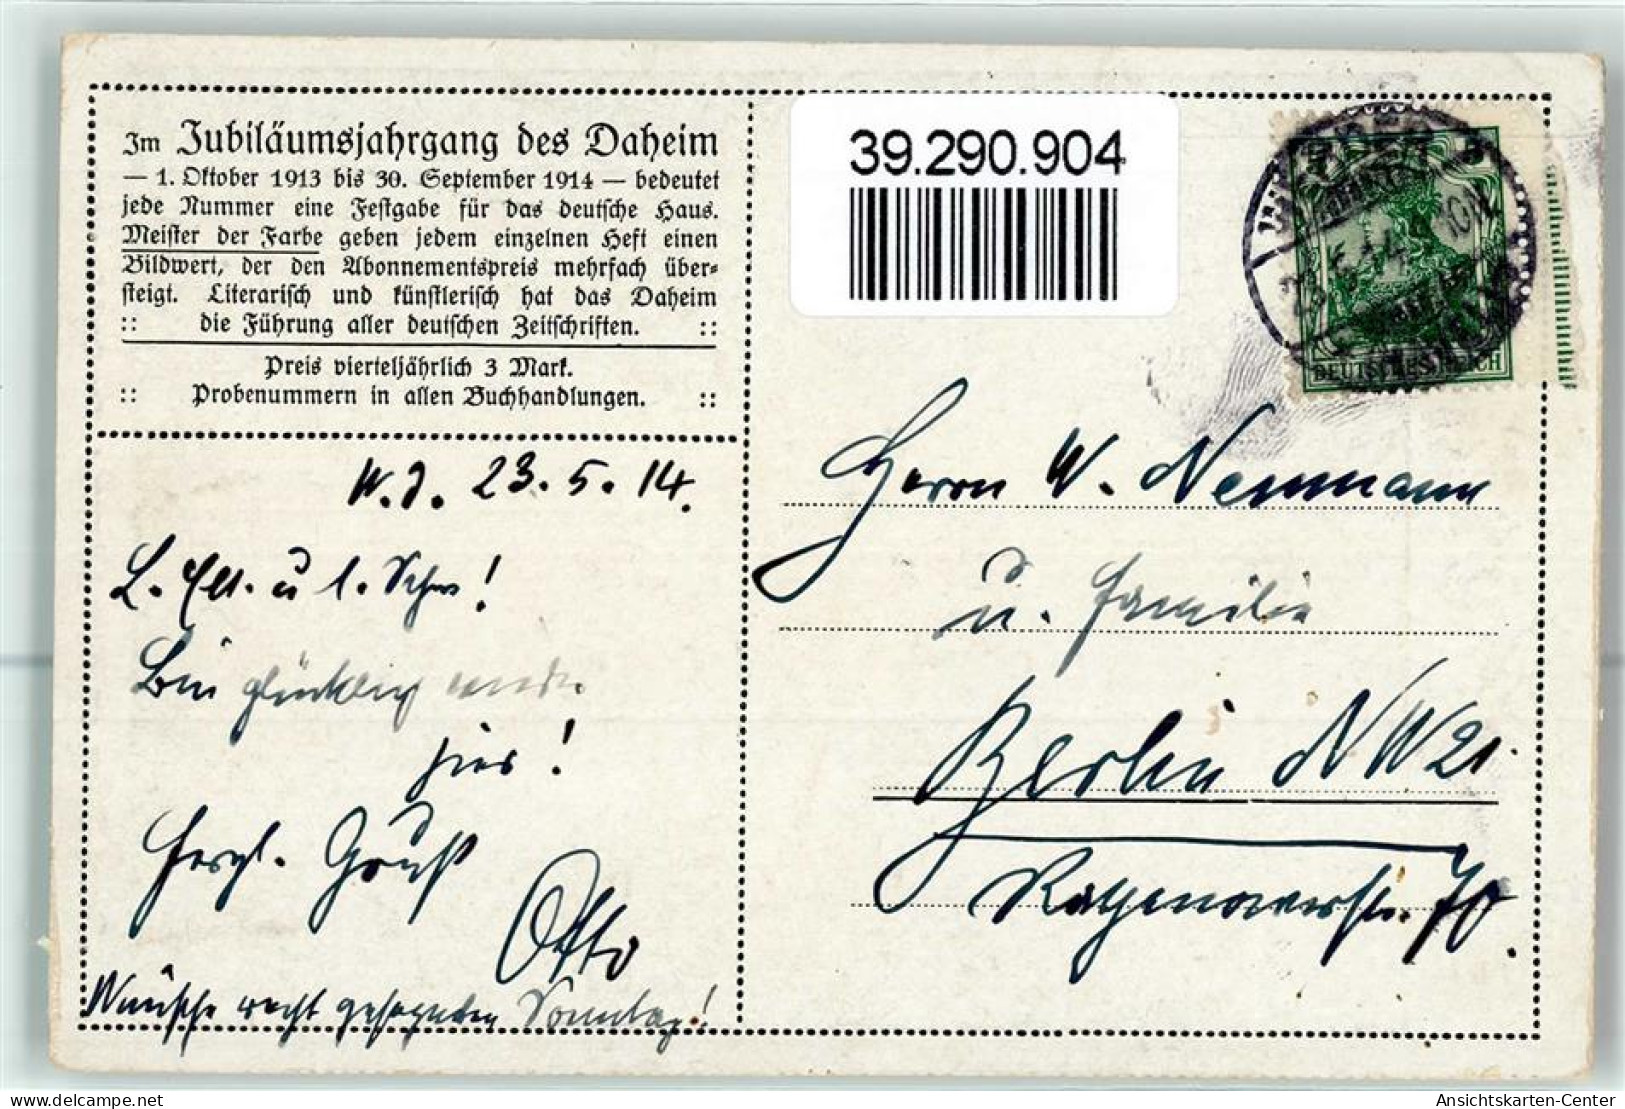 Im Jubiläumsjahrgang des Daheim
— 1. Oktober 1913 bis 30. September 1914 — bedeutet
jede Nummer eine Festgabe für das deutsche Haus.
Meister der Farbe geben jedem einzelnen Heft einen
Bildwert, der den Abonnementspreis mehrfach über-
steigt. Literarisch und künstlerisch hat das Daheim
:: die Führung aller deutschen Zeitschriften. ::
Preis vierteljährlich 3 Mark.
:: Probenummern in allen Buchhandlungen. ::
39.290.904
5
DEUTSCHES REICH
W. J. 23.5.14.
L. Elt. u. l. Schw!
Bin glücklich wieder
hier!
Herzl. Gruß
Otto
Wünsche recht gesegneten Sonntag!
Herrn W. Neumann
u. Familie
Berlin NW 21.
Rathenowerstr. 70.
delcampe.net
Ansichtskarten-Center